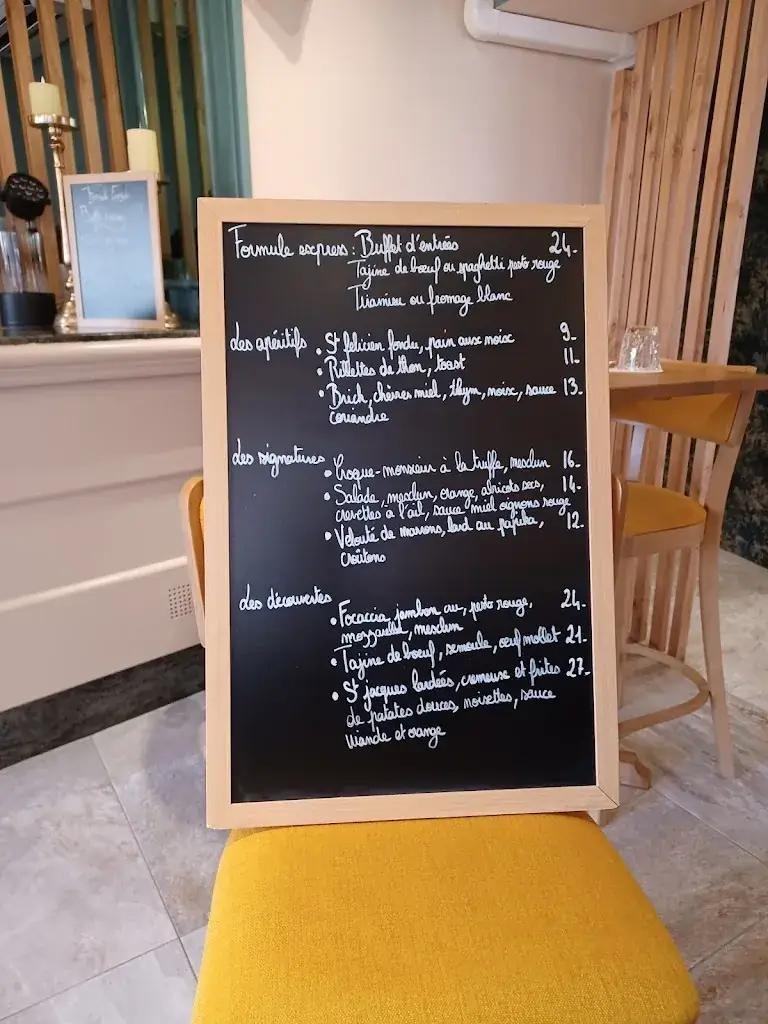 Formule express: Buffet d'entrées 24-
Tajine de bœuf ou spaghetti pesto rouge
Tiramisu ou fromage blanc
Les apéritifs • St felicien fondu, pain aux noix 9-
• Rillettes de thon, toast 11-
• Brick, chèvres miel, thym, noix, sauce 13-
coriandre
Les signatures • Croque-monsieur à la truffe, mesclun 16-
• Salade, mesclun, orange, abricots secs, 14-
crevettes à l'ail, sauce miel oignons rouge
• Velouté de marrons, lard au paprika, 12-
croûtons
Les découvertes • Focaccia jambon cru, pesto rouge, 24-
mozzarella, mesclun
• Tajine de bœuf, semoule, œuf mollet 21-
• St jacques lardées, cremeuse et frites 27-
de patates douces, noisettes, sauce
viande et orange